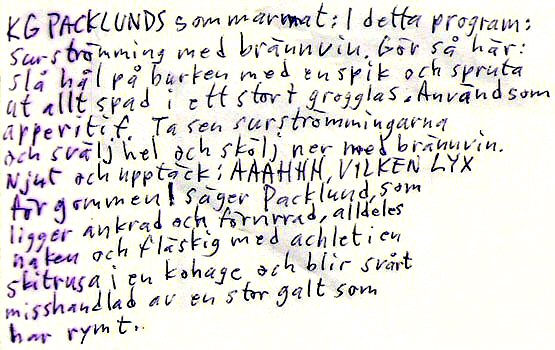 KG PACKLUNDS sommarmat: I detta program:
Surströmming med brännvin. Gör så här:
Slå hål på burken med en spik och spruta
ut allt spad i ett stort grogglas. Använd som
apperitif. Ta sen surströmmingarna
och svälj hel och skölj ner med brännvin.
Njut och upptäck: AAAHHH, VILKEN LYX
för gommen! säger Packlund, som
ligger ankrad och förvirrad, alldeles
naken och fläskig med achletien
skitrusa i en kohage och blir svårt
misshandlad av en stor galt som
har rymt..